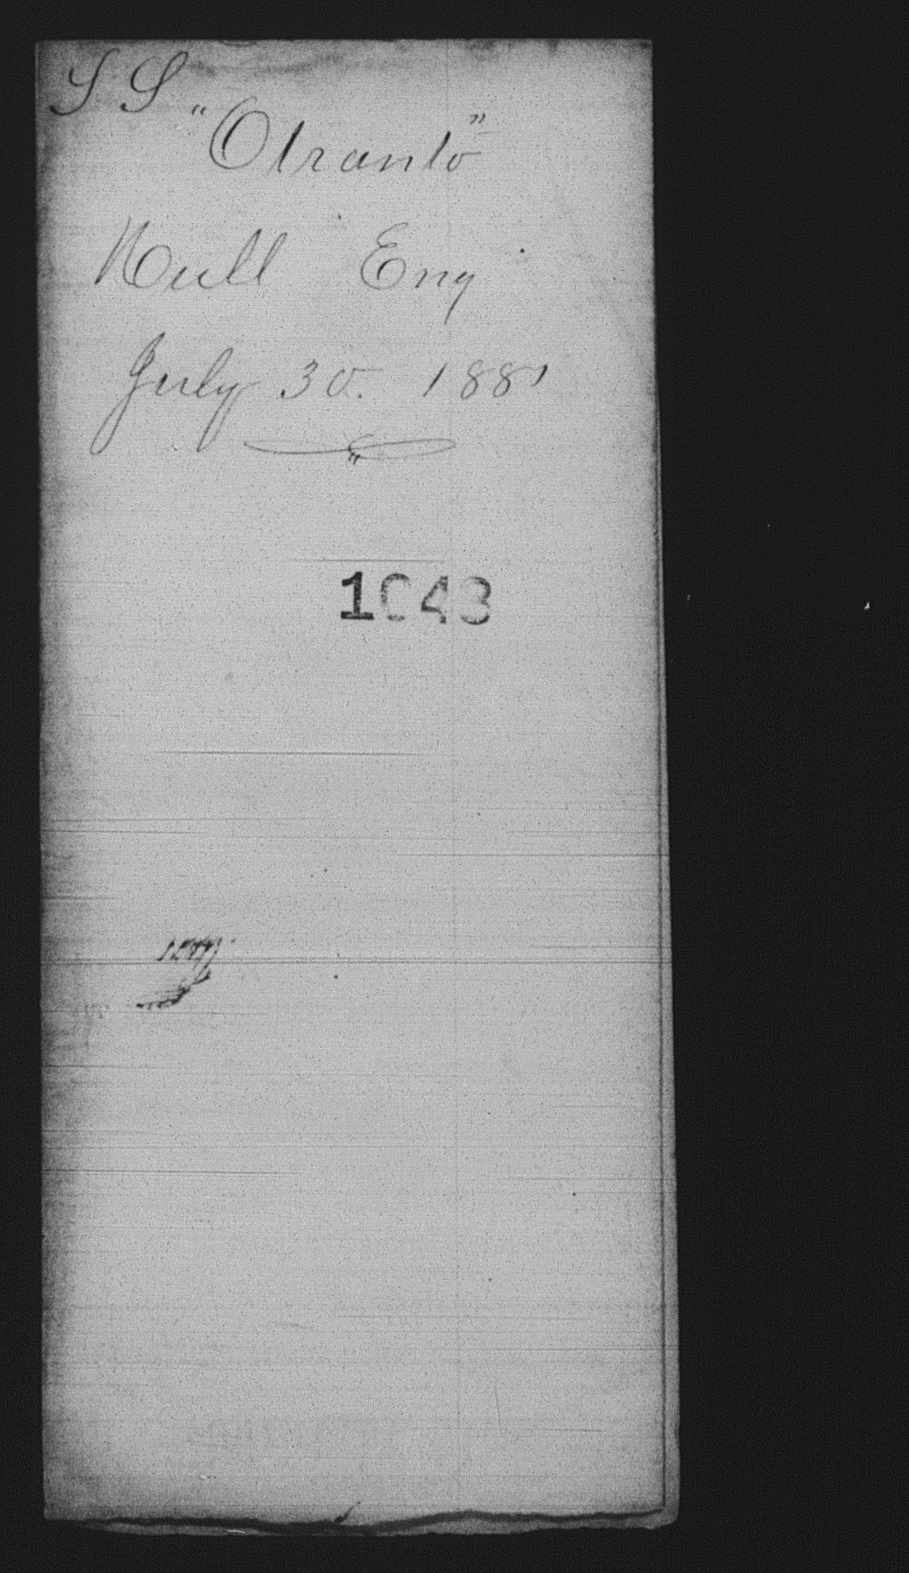 S S
"Otranto"
Hull Eng
July 30. 1881
1043